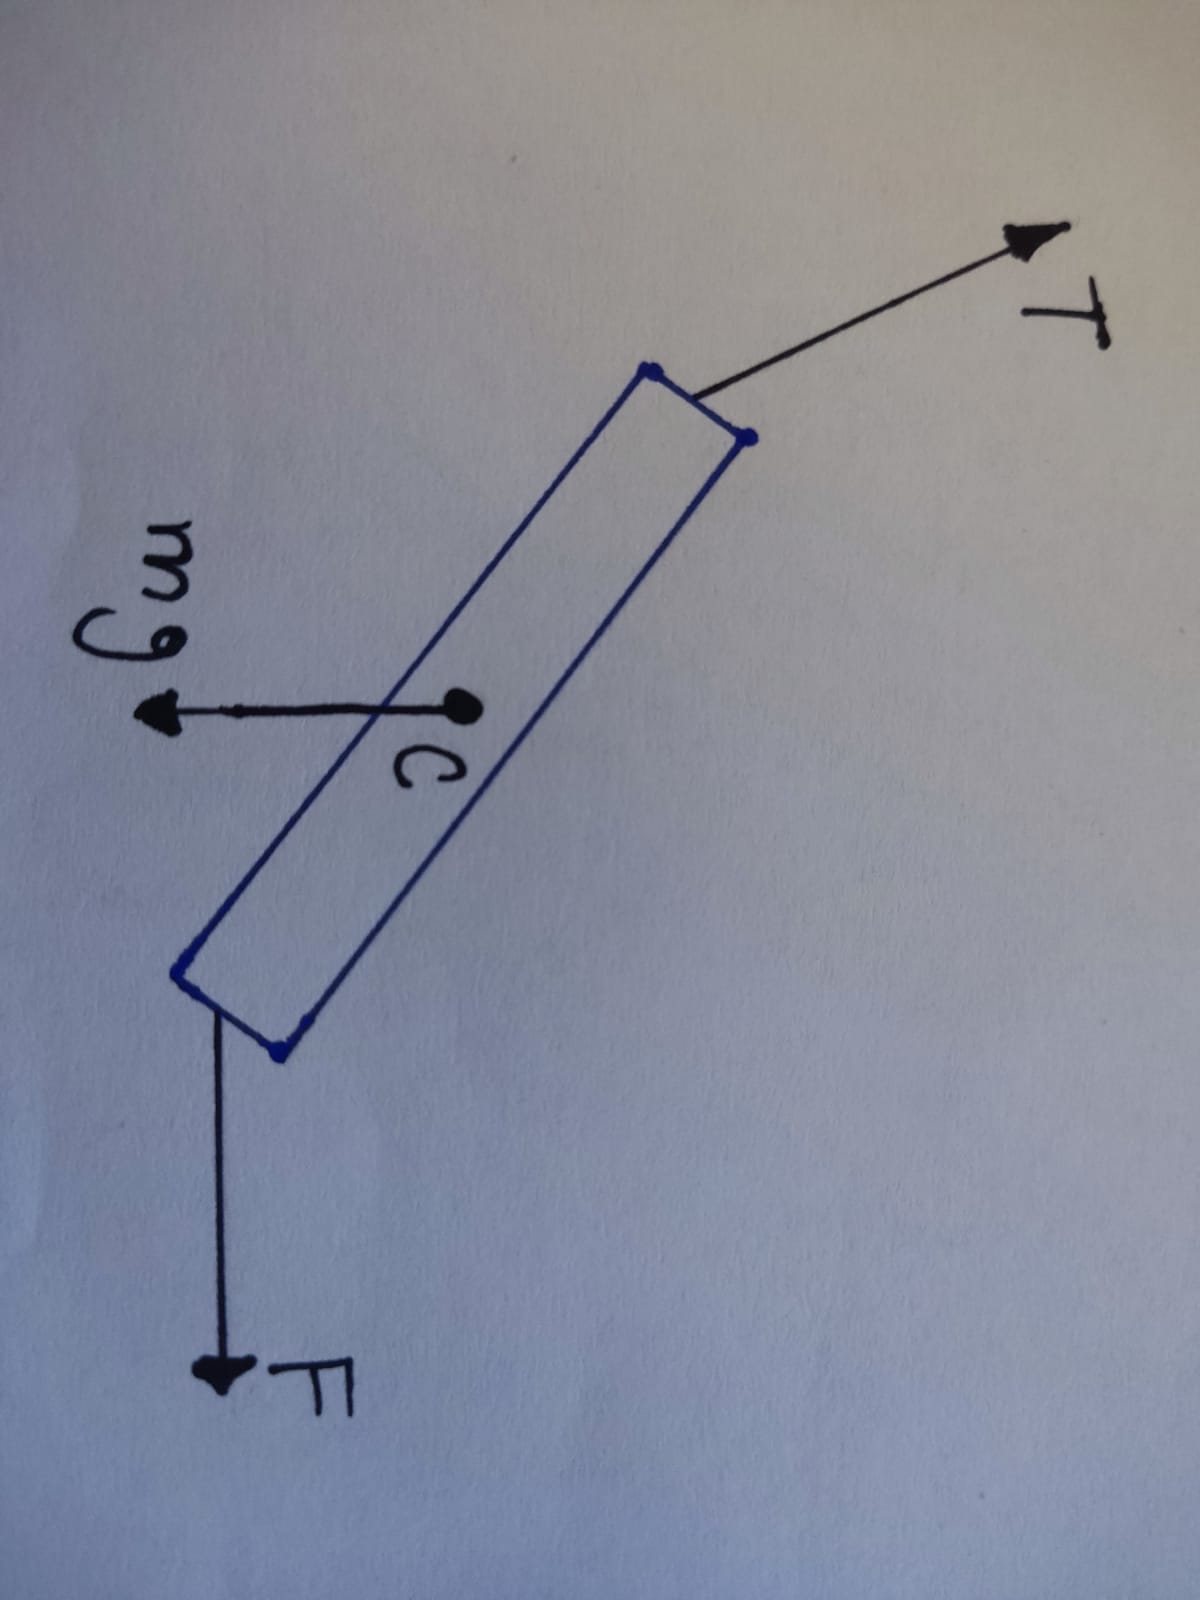 T
C
F
mg